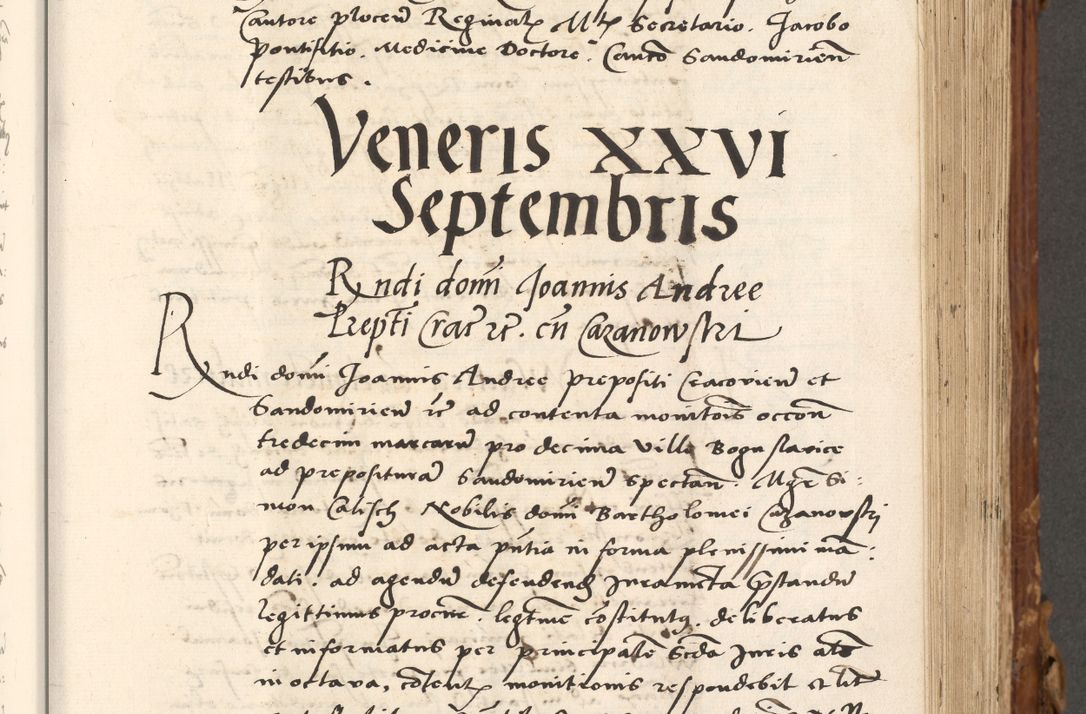 Cantore procen Reginal Mtis Secretario. Jacobo
pontifitio. Medicine Doctore. Canco Sandomirien
testibus.
Veneris XXVI
Septembris
Rndi domi Joannis Andree
Prepti Crac rc. cn Cazanowski
Rndi domi Joannis Andree prepositi Cracovien et
Sandomirien rc ad contenta monitois occon
tredecim marcaru pro decima ville Boguslavice
ad prepositura Sandomirien spectan. Mgr Si:
mon Calisch Nobilis domi Bartholomei Cazanowski
per ipsum ad acta pntia in forma plenissima:
dati. ad agendu defendend Juramta prstandu
legittimus procur. legtime costitutq. deliberatus
et informatus per principale scda Juris als
in octava, cotent monitionis respondebit et lit